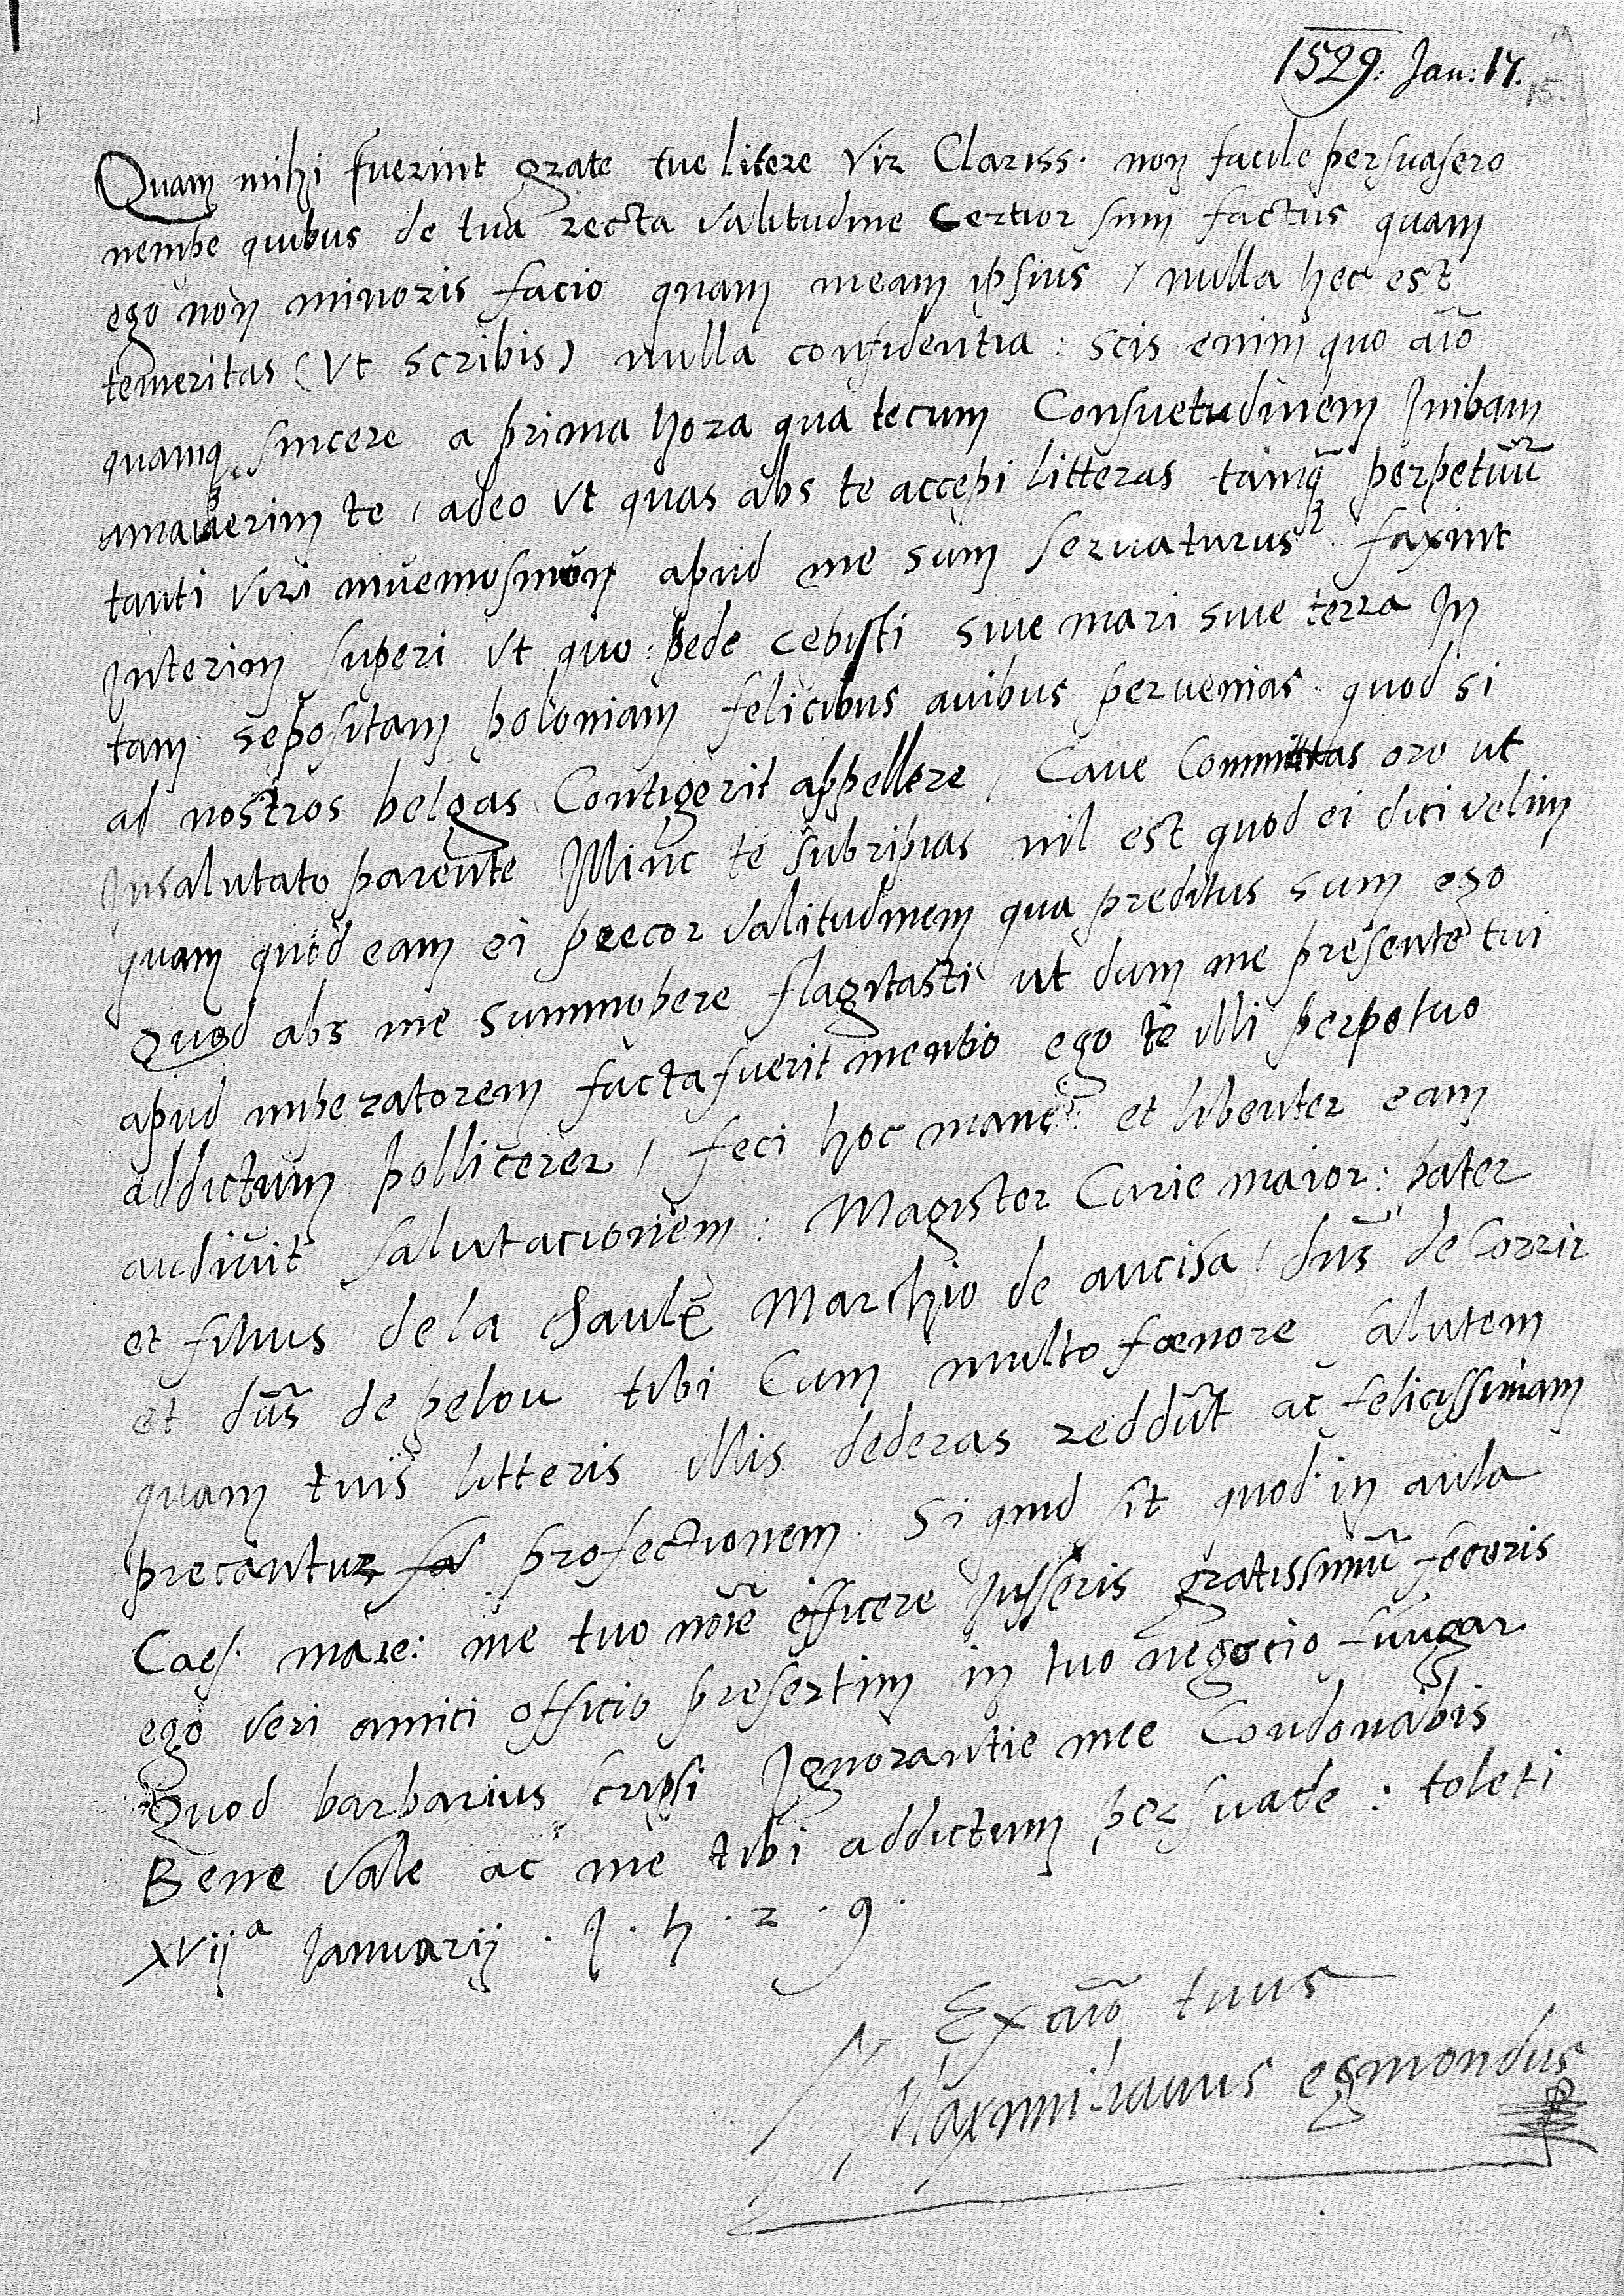 1529. Jan: 17.
15.
Quam mihi fuerint grate tue litere Vir Clariss. non facile persuasero
nempe quibus de tua recta valitudine Certior sum factus quam
ego non minoris facio quam meam ipsius / nulla hec est
temeritas (Vt scribis) nulla confidentia : scis enim quo aīo
quamq sincere a prima hora qua tecum Consuetudinem Inibam
amauerim te / adeo vt quas abs te accepi litteras tamq̄ perpetuū
tanti viri mnemosinon apud me sum seruaturus faxint
Interim superi vt quo pede cepisti siue mari siue terra In
tam sepositam poloniam felicibus auibus peruenias. quod si
ad nostros belgas Contigerit appellere / Caue Committas oro ut
Insalutato parente Illinc te subripias nil est quod ei dici velim
quam quod eam ei precor valitudinem qua preditus sum ego
Quod abs me summopere flagitasti ut dum me presente tui
apud imperatorem facta fuerit mentio ego te illi perpetuo
addictum pollicerer / feci hoc mane : et libenter eam
audiuit salutacionem : Magister Curie maior : pater
et filius de la Saulx Marchio de aucisa / dn̄s de Corrir
et dn̄s de pelou tibi Cum multo foenore salutem
quam tuis litteris illis dederas reddūt ac felicissimam
precantur profectionem. Si quid sit quod in aula
Caes. maie: me tuo noīe efficere Iusseris gratissimū feceris
ego veri amici officio presertim in tuo negocio fungar
Quod barbarius scripsi Ignorantie mee Condonabis
Bene vale ac me tibi addictum persuade : toleti
xvijᵃ Januarij . 1 . 5 . 2 . 9 .
Ex aīo tuus
Maximilianus egmondus